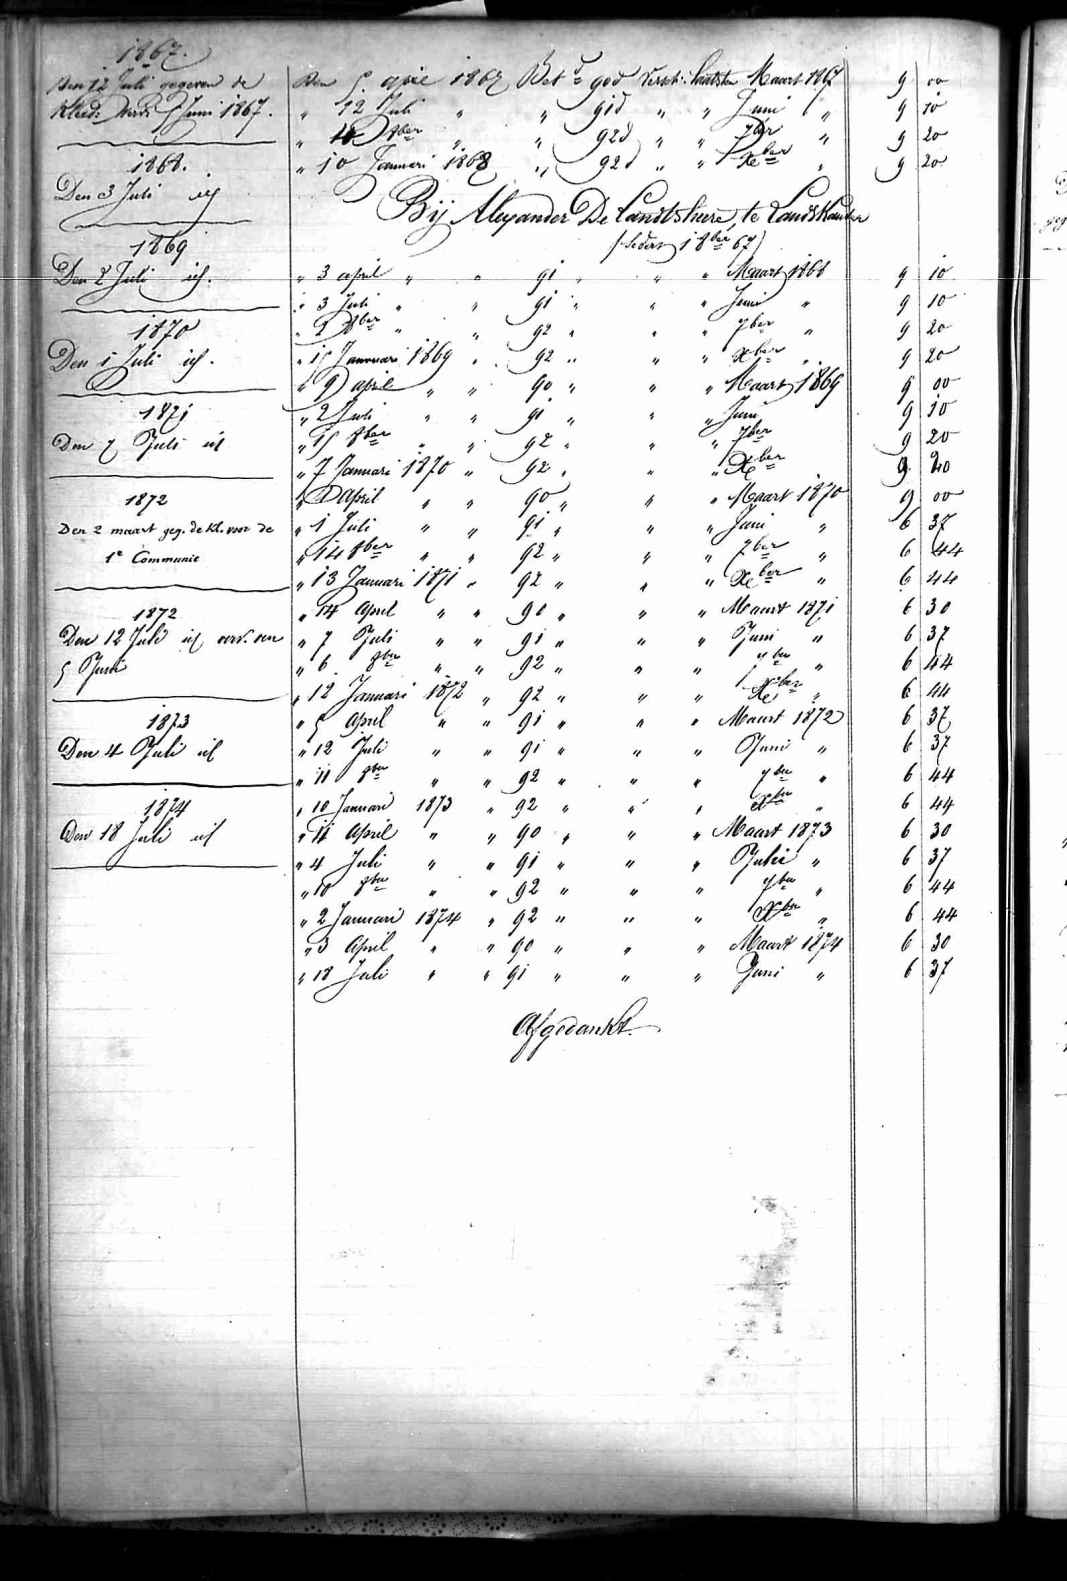 1867.
Den 12 Juli gegeven de
Kleed: Verd: 7 Juni 1867.
1868.
Den 3 Juli id
1869
Den 2 Juli id.
1870
Den 1 Juli id.
1871
Den 7 Juli id
1872
Den 2 maart geg. de kl. voor de
1e Communie
1872
Den 12 Juli id
5 Juli
1873
Den 4 Juli id
1874
Den 18 Juli id
Den 5 april 1867 Bet d 90d versch: laatsten Maart 1867 9 00
" 12 Juli " " 91d " " Juni " 9 10
" 8ber " " 92d " " 7ber " 9 20
" 10 Januari 1868 " 92d " " Xber " 9 20
Bij Alexander De Landtsheere, te Landskouter
(sedert 1 8ber 67)
" 3 april " " 91 " " Maart 1868 9 10
" 3 Juli " " 91 " " Juni " 9 10
" 9 8ber " " 92 " " 7ber " 9 20
" 15 Januari 1869 " 92 " " Xber " 9 20
" 9 april " " 90 " " Maart 1869 9 00
" 2 Juli " " 91 " " Juni 9 10
" 15 8ber " " 92 " " 7ber 9 20
" 7 Januari 1870 " 92 " " Xber 9 20
" April " " 90 " " Maart 1870 9 00
" 1 Juli " " 91 " " Juni " 6 37
" 14 8ber " " 92 " " 7ber " 6 44
" 13 Januari 1871 " 92 " " Xber " 6 44
" 14 April " " 90 " " Maart 1871 6 30
" 7 Juli " " 91 " " Juni " 6 37
" 6 8ber " " 92 " " 7ber " 6 44
" 12 Januari 1872 " 92 " " Xber " 6 44
" 5 April " " 91 " " Maart 1872 6 37
" 12 Juli " " 91 " " Juni " 6 37
" 11 8ber " " 92 " " 7ber " 6 44
" 10 Januari 1873 " 92 " " Xber " 6 44
" 11 April " " 90 " " Maart 1873 6 30
" 4 Juli " " 91 " " Juli " 6 37
" 10 8ber " " 92 " " 7ber " 6 44
" 2 Januari 1874 " 92 " " Xber " 6 44
" 3 April " " 90 " " Maart 1874 6 30
" 18 Juli " " 91 " " Juni " 6 37
Afgedankt.